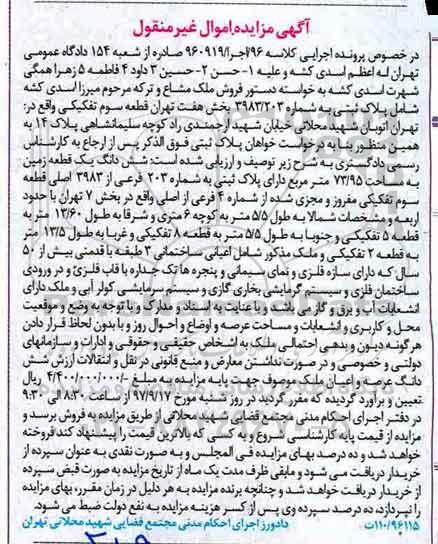 آگهی مزایده اموال غیر منقول
در خصوص پرونده اجرایی کلاسه ۹۶/اجرا/۹۶۰۹۱۹ صادره از شعبه ۱۵۴ دادگاه عمومی
تهران له اعظم اسدی کشه و علیه ۱- حسن ۲- حسین ۳ داود ۴ فاطمه ۵ زهرا همگی
شهرت اسدی کشه به خواسته دستور فروش ملک مشاع و ترکه مرحوم میرزا اسدی کشه
شامل پلاک ثبتی به شماره ۳۹۸۳/۲۰۳ بخش هفت تهران قطعه سوم تفکیکی واقع در:
تهران اتوبان شهید محلاتی خیابان شهید ارجمندی راد کوچه سلیمانشاهی پلاک ۱۴ به
همین منظور بنا به درخواست خواهان پلاک ثبتی فوق الذکر پس از ارجاع به کارشناس
رسمی دادگستری به شرح زیر توصیف و ارزیابی شده است: شش دانگ یک قطعه زمین
به مساحت ۷۳/۹۵ متر مربع دارای پلاک ثبتی به شماره ۲۰۳ فرعی از ۳۹۸۳ اصلی قطعه
سوم تفکیکی مفروز و مجزی شده از شماره ۴ فرعی از اصلی واقع در بخش ۷ تهران با حدود
اربعه و مشخصات شمالا به طول ۵/۵ متر به کوچه ۶ متری و شرقا به طول ۱۳/۶۰ متر به
قطعه ۵ تفکیکی و جنوبا به طول ۵/۵ متر به قطعه ۸ تفکیکی و غربا به طول ۱۳/۵ متر
به قطعه ۲ تفکیکی و ملک مذکور شامل اعیانی ساختمانی ۳ طبقه با قدمتی بیش از ۵۰
سال که دارای سازه فلزی و نمای سیمانی و پنجره ها تک جداره با قاب فلزی و در ورودی
ساختمان فلزی و سیستم گرمایشی بخاری گازی و سیستم سرمایشی کولر آبی و ملک دارای
انشعابات آب و برق و گاز می باشد و با عنایت به اسناد و مدارک و با توجه به وضع و موقعیت
محل و کاربری و انشعابات و مساحت عرصه و اوضاع و احوال روز و با بدون لحاظ قرار دادن
هرگونه دیون و بدهی احتمالی ملک به اشخاص حقیقی و حقوقی و ادارات و سازمانهای
دولتی و خصوصی و در صورت نداشتن معارض و منع قانونی در نقل و انتقالات ارزش شش
دانگ عرصه و اعیان ملک موصوف جهت پایه مزایده به مبلغ ۴/۴۰۰/۰۰۰/۰۰۰/- ریال
تعیین و برآورد گردیده که مقرر گردید در روز شنبه مورخ ۹۷/۹/۱۷ از ساعت ۸:۳۰ الی ۹:۳۰
در دفتر اجرای احکام مدنی مجتمع قضایی شهید محلاتی از طریق مزایده به فروش برسد و
مزایده از قیمت پایه کارشناسی شروع و به کسی که بالاترین قیمت را پیشنهاد کند فروخته
خواهد شد و ده درصد بهای مزایده فی المجلس و به صورت نقدی به عنوان سپرده از
خریدار دریافت می شود و مابقی ظرف مدت یک ماه از تاریخ مزایده به صورت قبض سپرده
از خریدار دریافت خواهد شد و چنانچه برنده مزایده به هر دلیل در زمان مقرر، بهای مزایده
را نپردازد، ده درصد سپرده وی پس از کسر هزینه مزایده به نفع دولت ضبط می شود.
۱۱۰/۹۶۱۱۵ت دادورز اجرای احکام مدنی مجتمع قضایی شهید محلاتی تهران